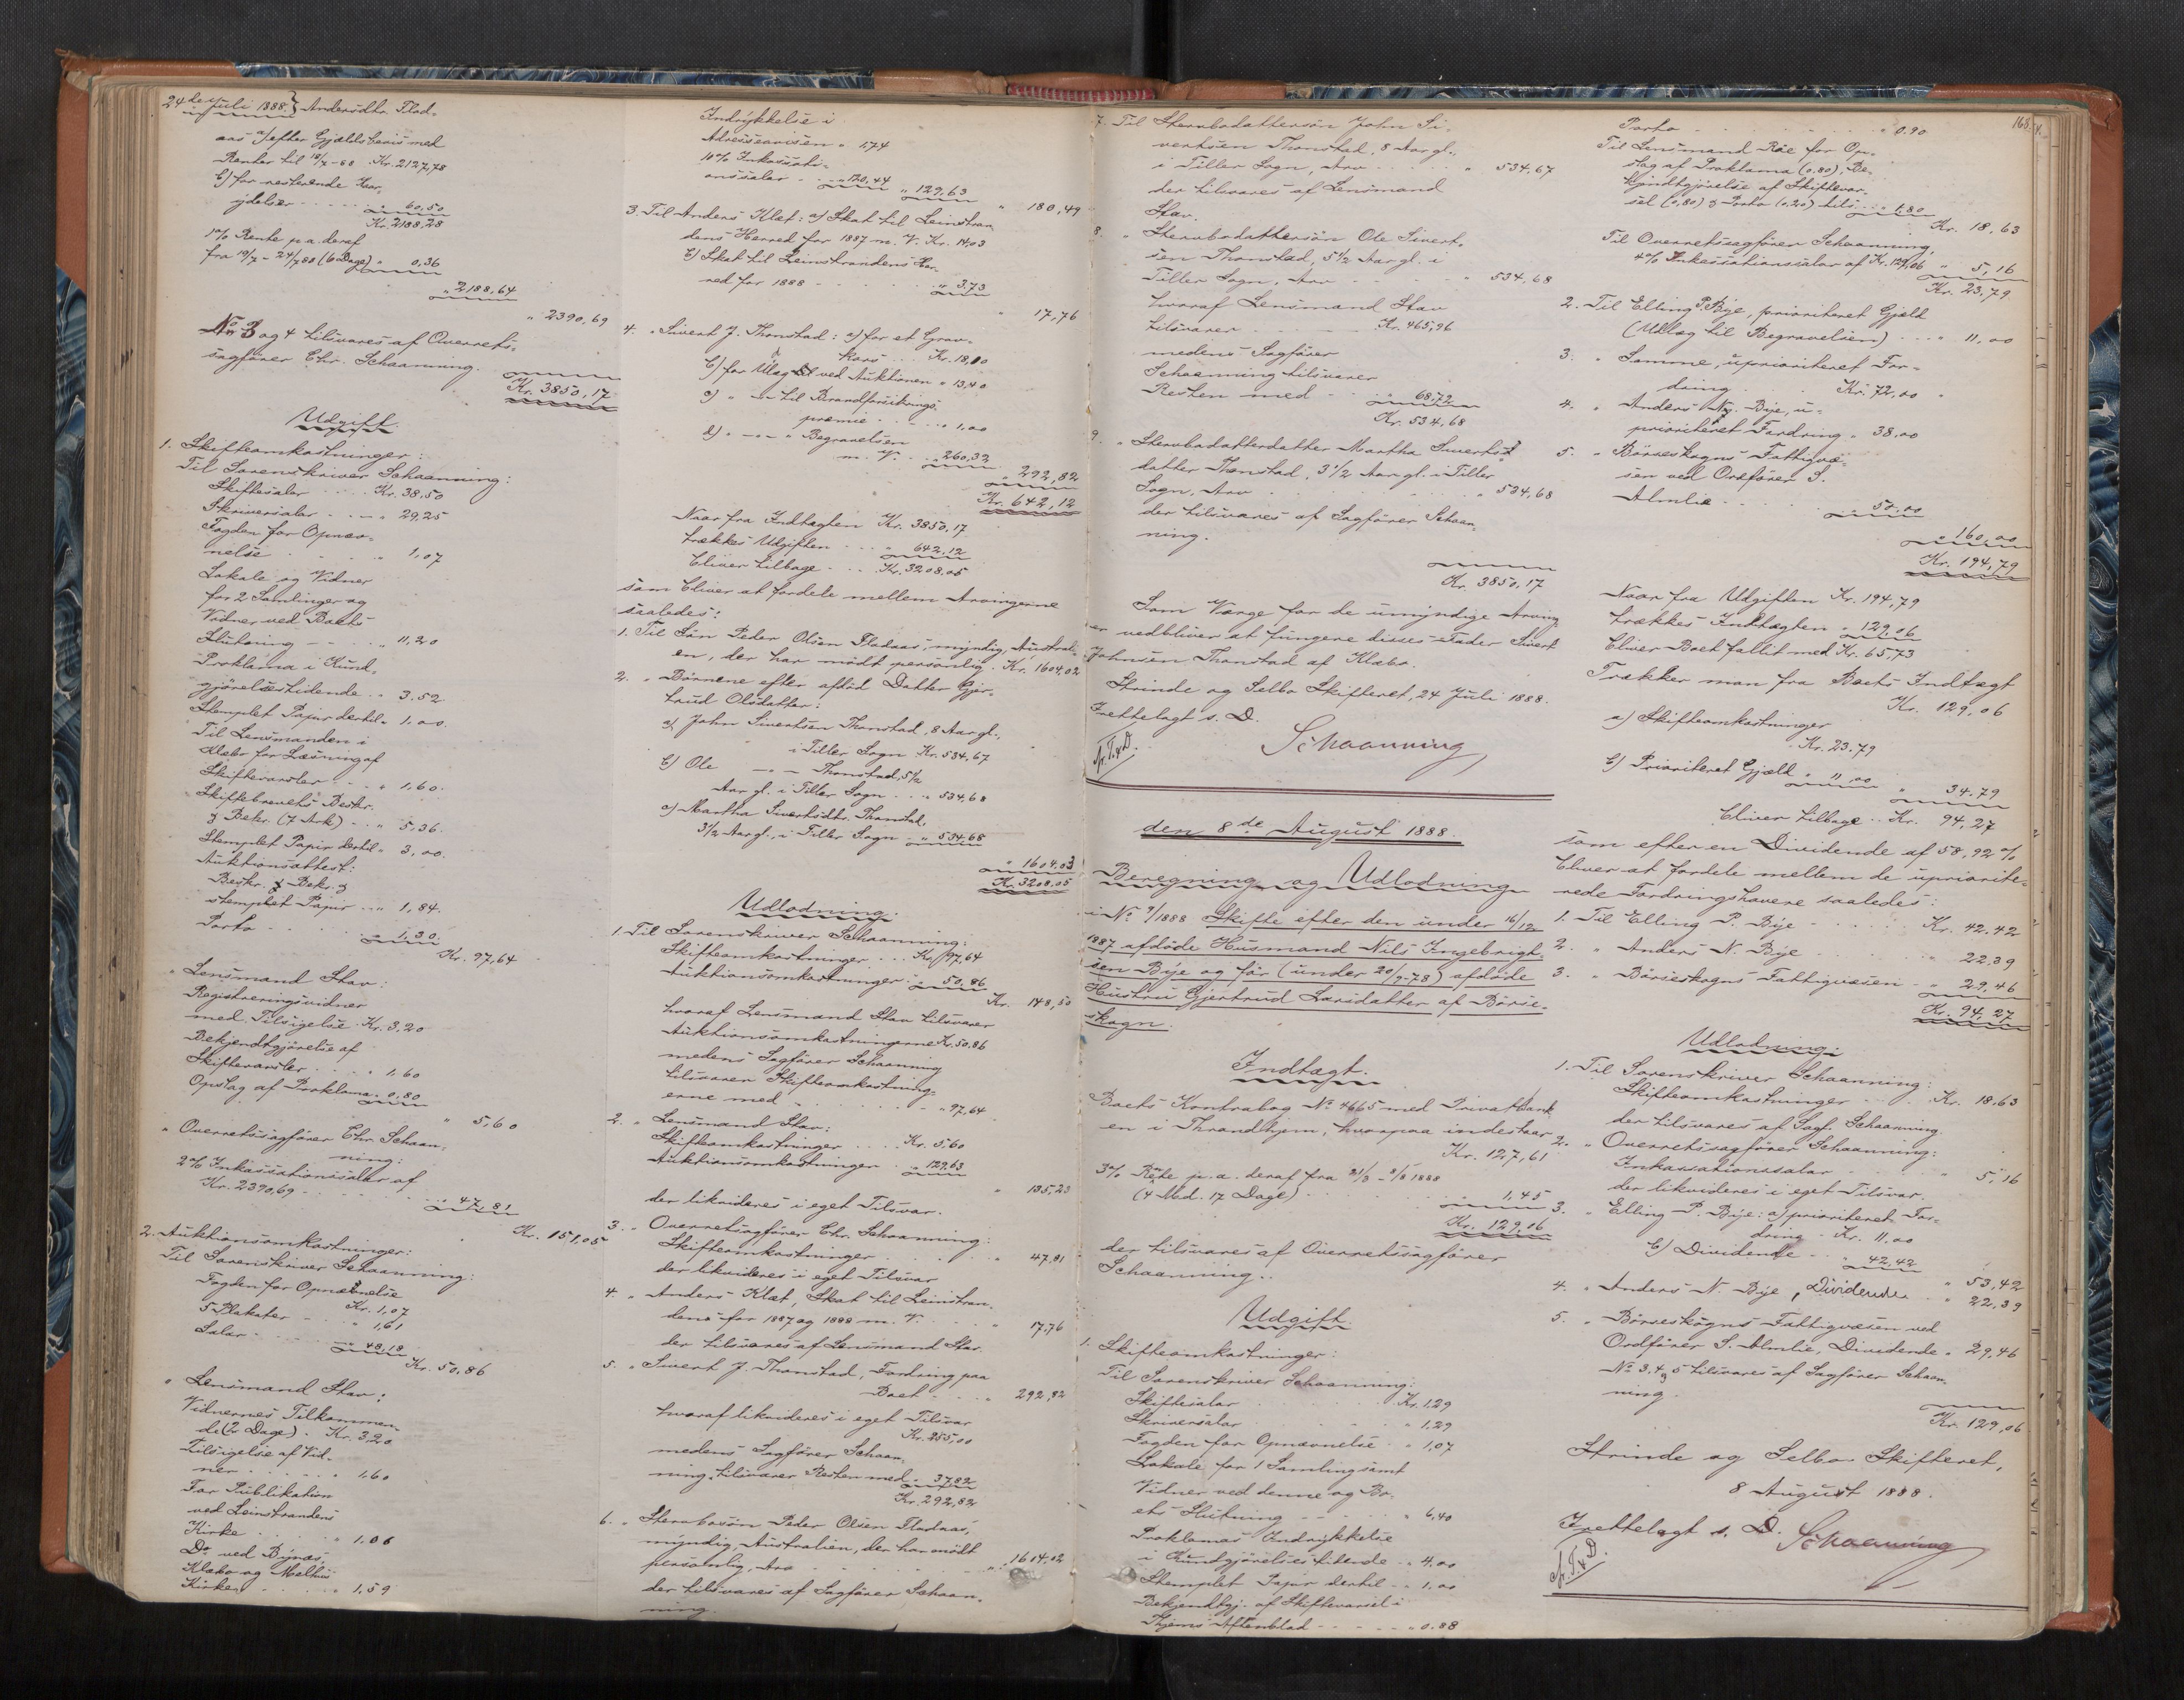 24de Juli 1888. Andersdtr. Flad-
aas a) efter Gjældsbevis med
Renter til 18/7-88 Kr. 2127,78
b) for resterende Kar-
ydelser " 60,50
Kr. 2188,28
1% Rente p. a. deraf
fra 19/7 - 24/7 88 (6 Dage) " 0,36
" 2188,64
" 2390,69
No 3 og 4 tilsvares af Overrets-
sagfører Chr. Schaanning.
Kr. 3850,17
Udgift.
1. Skifteomkostninger:
Til Sorenskriver Schaanning:
Skiftesalar Kr. 38,50
Skriversalar " 29,25
Fogden for Opnæv-
nelse " 1,07
Lokale og Vidner
for 2 Samlinger og
Vidner ved Boets
Slutning " 11,20
Proklama i Kund-
gjørelsestidende " 3.52
Stemplet Papir dertil " 1.00.
Til Lensmanden i
Klæbo for Læsning af
Skiftevarsler " 1,60.
Skiftebrevets Beskr.
& Bekr. (7 Ark) " 5,36.
Stemplet Papir dertil " 3,00.
Auktionsattest:
Beskr. & Bekr. &
stemplet Papir " 1,84.
Porto " 1,30.
Kr. 97,64
" Lensmand Stav:
Registreringsvidner
med Tilsigelse Kr. 3,20
Bekjendtgjørelse af
Skiftevarsler " 1,60
Opslag af Proklama " 0,80
" 5,60
" Overretssagfører Chr. Schaan-
ning:
2% Inkassationssalar af
Kr. 2390,69 " 47,81
Kr. 151,05
2. Auktionsomkostninger:
Til Sorenskriver Schaanning:
Fogden for Opnævnelse
Kr. 1,07
5 Plakater " 1,61
Salar " 48,18
Kr. 50,86
" Lensmand Stav:
Vidnernes Tilkommen-
de (2 Dage) Kr. 3,20
Tilsigelse af Vid-
ner " 1,60
For Publikation
ved Leinstrandens
Kirke " 1.06
Do ved Bynæs,
Klæbo og Melhus
Kirker " 1.59
Indrykkelse i
Adresseavisen " 1,74
10% Inkassati-
onssalar " 120,44
" 129,63
" 180,49
3. Til Anders Klæt: a) Skat til Leinstran
dens Herred for 1887 m. V. Kr. 14,03
b) Skat til Leinstrandens Her-
red for 1888 " 3,73
" 17,76
4. " Sivert J. Thonstad: a) for et Grav-
kors Kr. 18,00
b) for Ulæg ved Auktionen " 13,40
c) " -"- til Brandforsikrings-
præmie " 1,00
d) " -"- " Begravelsen
m. V. " 260,32
" 292,82
Kr. 642,12
Naar fra Indtægten Kr. 3850,17
trækkes Udgiften " 642,12
bliver tilbage Kr. 3208,05
som bliver at fordele mellem Arvingerne
saaledes:
1. Til Søn Peder Olsen Fladaas, myndig, Australi-
en, der har mødt personlig Kr. 1604,02
2. " Børnene efter afdød Datter Gjer-
trud Olsdatter:
a) John Sivertsen Thonstad, 8 Aar gl.,
i Tiller Sogn Kr. 534,67
b) Ole -"- Thonstad, 5½
Aar gl. i Tiller Sogn " 534,68
c) Martha Sivertsdtr. Thonstad,
3½ Aar gl., i Tiller Sogn " 534,68
" 1604.03
Kr. 3208,05
Udlodning.
1. Til Sorenskriver Schaanning:
Skifteomkostninger Kr. 97,64
Auktionsomkostninger " 50,86
Kr. 148,50
hvoraf Lensmand Stav tilsvarer
Auktionsomkostningerne Kr. 50.86
medens Sagfører Schaanning
tilsvarer Skifteomkostning-
erne med " 97,64
2. " Lensmand Stav:
Skifteomkostninger Kr. 5,60
Auktionsomkostninger " 129,63
" 135,23
der likvideres i eget Tilsvar.
3. " Overretssagfører Chr. Schaanning:
Skifteomkostninger " 47,81
der likvideres i eget Tilsvar
4. " Anders Klæt, Skat til Leinstran-
dens for 1887 og 1888 m. V. " 17,76
der tilsvares af Lensmand Stav.
5. " Sivert J. Thonstad, Fordring paa
Boet " 292,82
hvoraf likvideres i eget Tilsvar
Kr. 255,00
medens Sagfører Schaan-
ning tilsvarer Resten med " 37,82
Kr. 292,82
6. " Stervbosøn Peder Olsen Fladaas,
myndig, Australien, der har mødt
personlig, Arv " 1604,02
der tilsvares af Sagfører Schaan-
ning.
7. Til Stervbodattersøn John Si-
vertsen Thonstad, 8 Aar gl.,
i Tiller Sogn, Arv " 534,67
der tilsvares af Lensmand
Stav.
8. " Stervbodattersøn Ole Sivert-
sen Thonstad, 5½ Aar gl. i
Tiller Sogn, Arv " 534,68
hvoraf Lensmand Stav
tilsvarer Kr. 465,96
medens Sagfører
Schaanning tilsvarer
Resten med " 68,72
Kr. 534,68
9. " Stervbodatterdatter Martha Siverts-
datter Thonstad, 3½ Aar gl. i Tiller
Sogn, Arv " 534,68
der tilsvares af Sagfører Schaan-
ning.
Kr. 3850,17
Som Værge for de umyndige Arving-
er vedbliver at fungere disses Fader Sivert
Johnsen Thonstad af Klæbo.
Strinde og Selbo Skifteret, 24 Juli 1888.
Frettelagt s. D.
Schaanning
den 8de August 1888.
Beregning og Udlodning
i No 9/1888 Skifte efter den under 16/12
1887 afdøde Husmand Nils Ingebrigt-
sen Bye og før (under 20/9-78) afdøde
Hustru Gjertrud Larsdatter af Børse-
skogn.
Indtægt.
Boets Kontrabog No 4665 med Privatbank
en i Throndhjem, hvorpaa indestaar
Kr. 127,61
3% Rente p. a. deraf fra 21/3 - 8/8 1888
(4 Md. 17 Dage) " 1,45
Kr. 129,06
der tilsvares af Overretssagfører
Schaanning.
Udgift.
1. Skifteomkostninger:
Til Sorenskriver Schaanning:
Skiftesalar Kr. 1,29
Skriversalar " 1,29
Fogden for Opnævnelse " 1,07
Lokale for 1 Samling samt
Vidner ved denne og Bo-
ets Slutning " 6,40
Proklamas Indrykkelse
i Kundgjørelsestidende " 4,00
Stemplet Papir dertil " 1,00
Bekjendtgj. af Skiftevarsel i
Thjems Aftenblad " 0.88
168.
Porto " 0.90
Til Lensmand Röe for Op-
slag af Proklama (0.80), Be-
kjendtgjørelse af Skiftevar-
sel (0,80) & Porto (0,20) tils. " 1,80
Kr. 18,63
Til Overretssagfører Schaanning,
4% Inkassationssalar af Kr. 129,06 " 5,16
Kr. 23,79
2. Til Elling P. Bye, prioriteret Gjæld
(Udlæg til Begravelsen) " 11,00
3. " Samme, uprioriteret For-
dring Kr. 72,00
4. " Anders N. Bye, u-
prioriteret Fordring " 38,00
5. " Børseskogns Fattigvæ-
sen ved Ordfører S.
Almlie " 50.00
" 160,00
Kr. 194,79
Naar fra Udgiften Kr. 194,79
trækkes Indtægten " 129,06
bliver Boet fallit med Kr. 65,73
Trækker man fra Boets Indtægt
Kr. 129,06
a) Skifteomkostninger
Kr. 23.79
b) Prioriteret Gjæld " 11,00
" 34,79
bliver tilbage Kr. 94,27
som efter en Dividende af 58,92%
bliver at fordele mellem de upriorite-
rede Fordringshavere saaledes:
1. Til Elling P. Bye Kr. 42,42
2. " Anders N. Bye " 22,39
3. " Børseskogns Fattigvæsen " 29,46
Kr. 94,27
Udlodning.
1. Til Sorenskriver Schaanning:
Skifteomkostninger Kr. 18,63
der tilsvares af Sagf. Schaanning.
2. " Overretssagfører Schaanning:
Inkassationssalar " 5,16
der likvideres i eget Tilsvar.
3. " Elling P. Bye: a) prioriteret For-
dring Kr. 11,00
b) Dividende " 42,42
" 53,42
4. " Anders N. Bye, Dividende " 22,39
5. " Børseskogns Fattigvæsen ved
Ordfører S. Almlie, Dividende " 29,46
No 3, 4 & 5 tilsvares af Sagfører Schaan-
ning.
Kr. 129,06
Strinde og Selbo Skifteret,
8 August 1888.
Frettelagt s. D. Schaanning